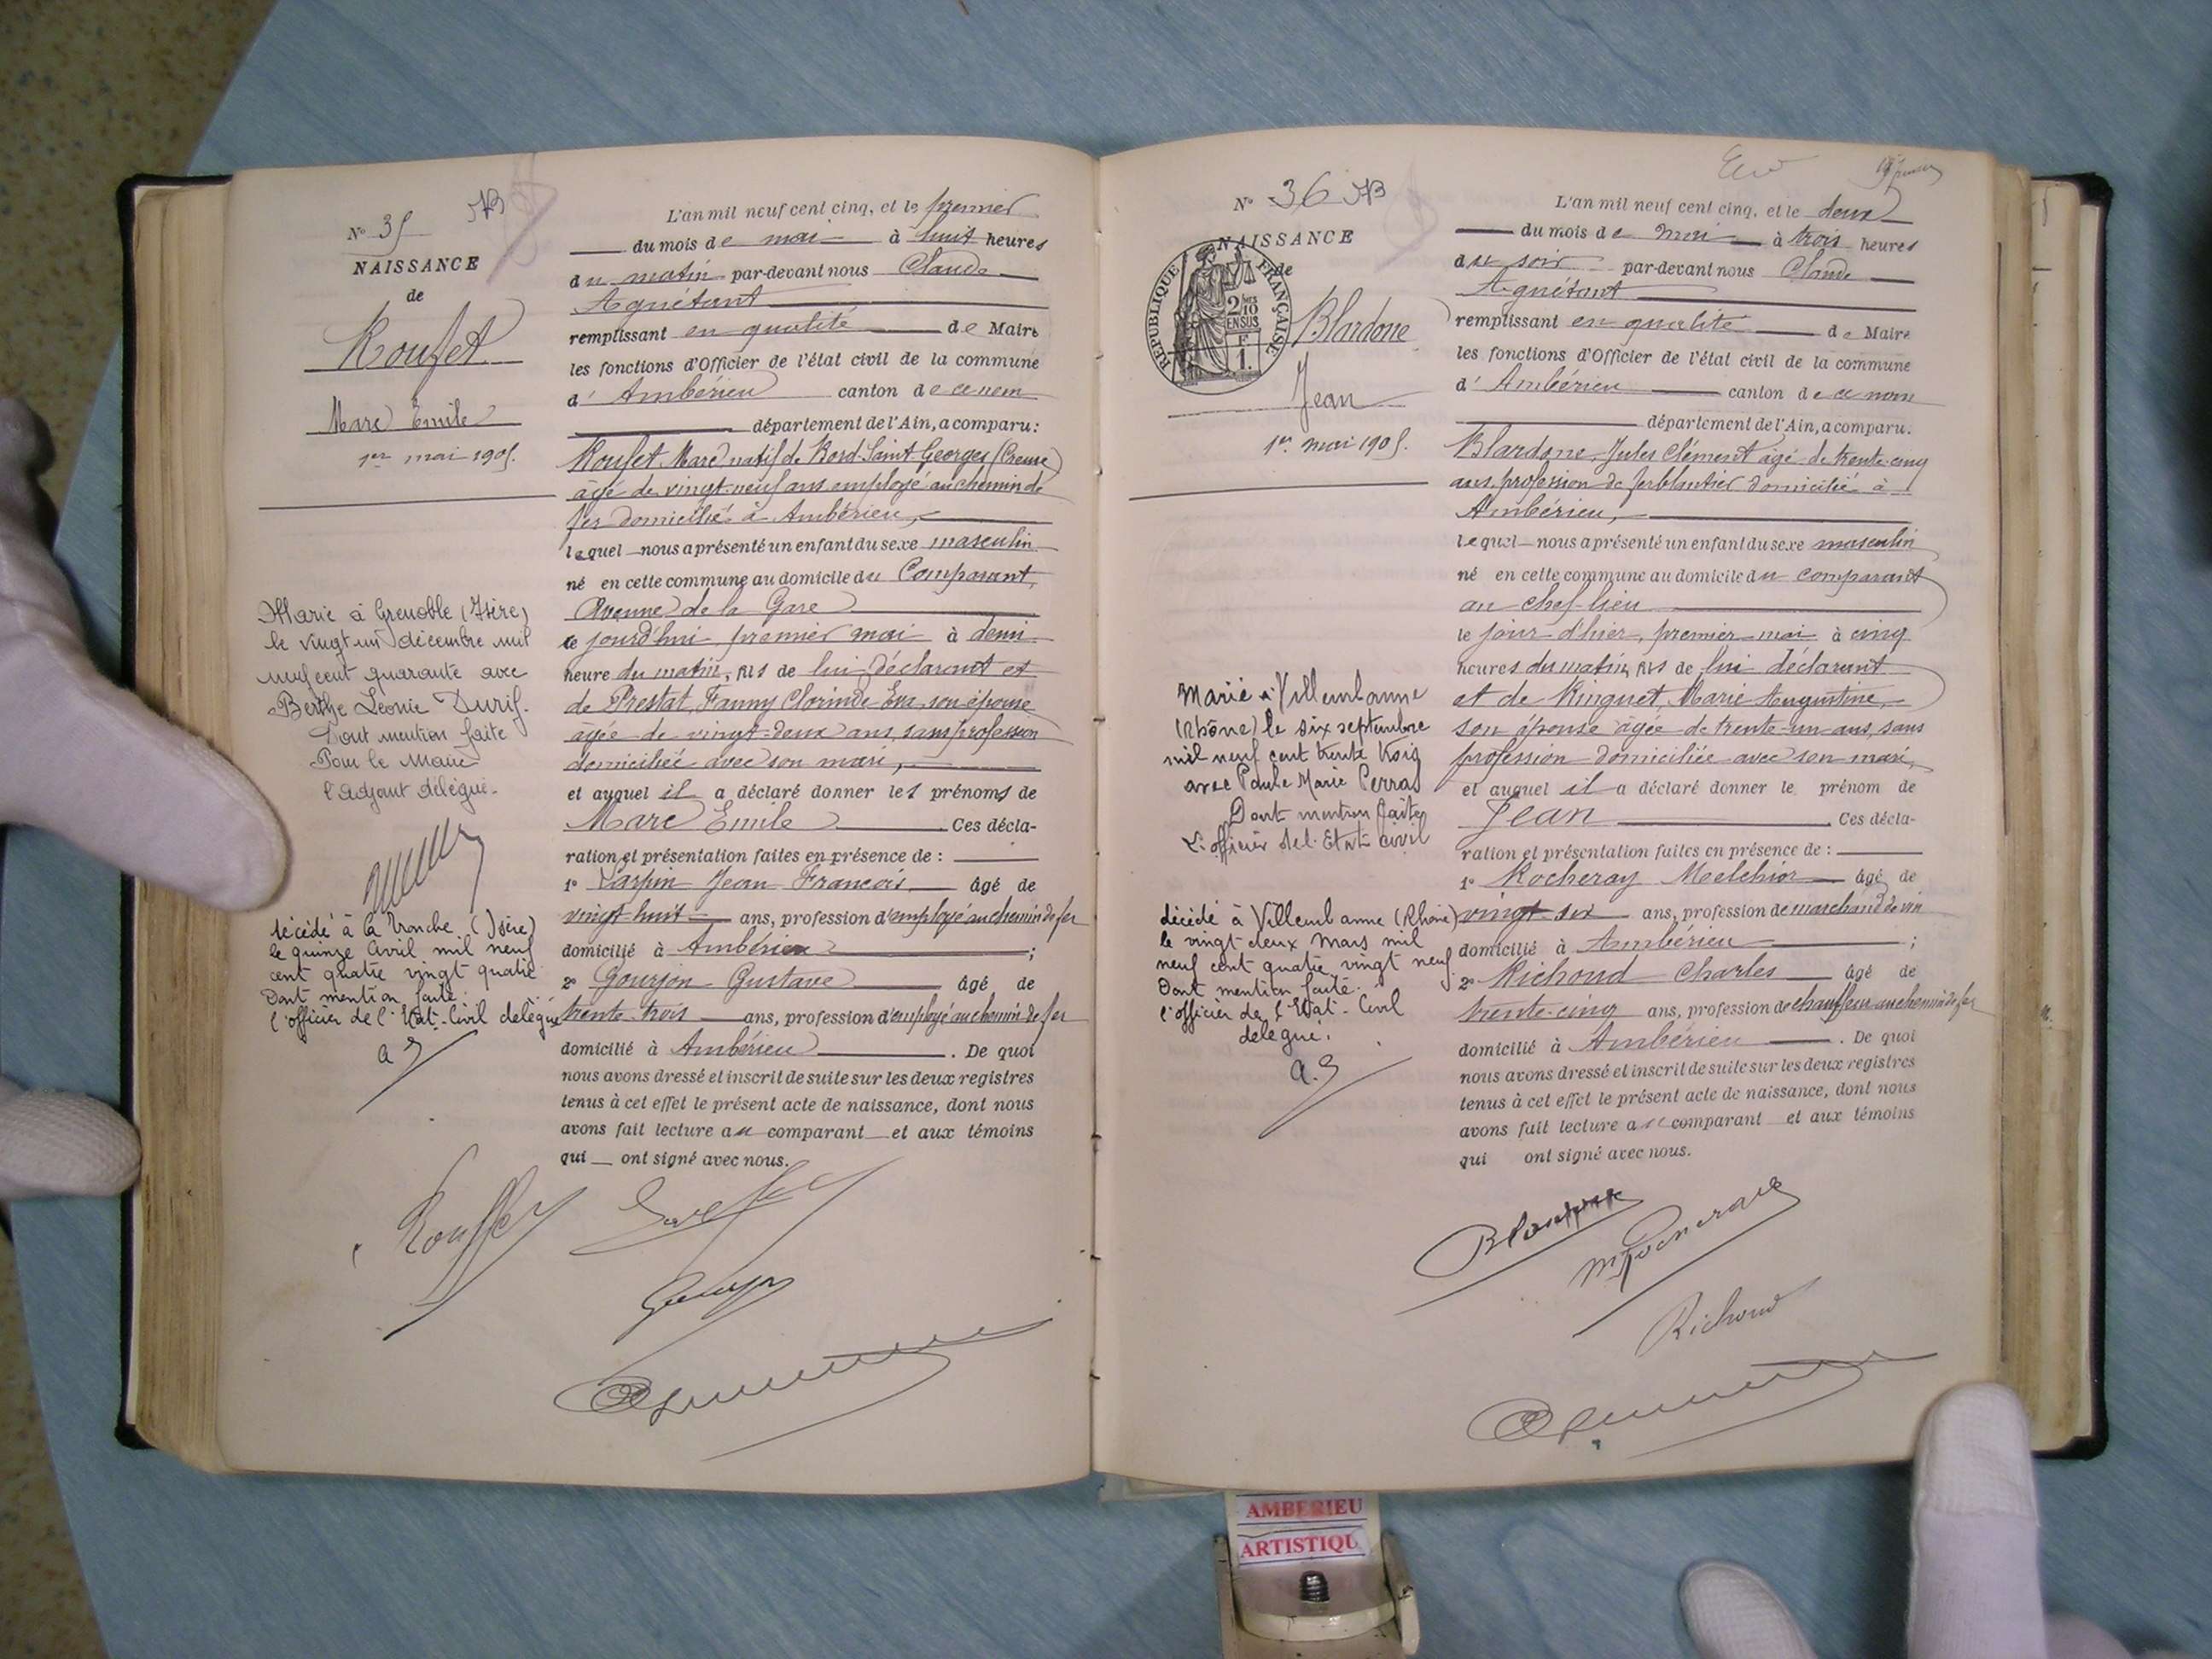 N° 35 NB
NAISSANCE
de
Roufet
Marc Emile
1er mai 1905.
Marié à Grenoble (Isère)
le vingt un décembre mil
neuf cent quarante avec
Berthe Léonie Durif.
Dont mention faite
Pour le Maire
l'adjoint délégué.
décédé à la Tronche (Isère)
le quinze Avril mil neuf
cent quatre vingt quatre
Dont mention faite.
l'officier de l'Etat-Civil délégué
L'an mil neuf cent cinq, et le premier
du mois de mai à huit heures
du matin par-devant nous Claude
Agnétant
remplissant en qualité de Maire
les fonctions d'Officier de l'état civil de la commune
d' Ambérieu canton de ce nom
département de l'Ain, a comparu:
Roufet Marc natif de Bord-Saint-Georges (Creuse)
âgé de vingt-neuf ans employé au chemin de
fer domicilié à Ambérieu,
lequel nous a présenté un enfant du sexe masculin
né en cette commune au domicile du Comparant,
Avenue de la Gare
ce jourd'hui premier mai à demi
heure du matin, fils de lui déclarant et
de Prestat, Fanny Clorinde Eva son épouse
âgée de vingt-deux ans, sans profession
domiciliée avec son mari,
et auquel il a déclaré donner les prénoms de
Marc Emile Ces décla-
ration et présentation faites en présence de :
1° Jean François âgé de
vingt-huit ans, profession d'employé au chemin de fer
domicilié à Ambérieu ;
2° Gourjon Gustave âgé de
trente-trois ans, profession d'employé au chemin de fer
domicilié à Ambérieu . De quoi
nous avons dressé et inscrit de suite sur les deux registres
tenus à cet effet le présent acte de naissance, dont nous
avons fait lecture au comparant et aux témoins
qui ont signé avec nous.
N° 36 NB
NAISSANCE
de
REPUBLIQUE FRANÇAISE
2/10
EN SUS
F
1.
Blardone
Jean
1er mai 1905.
Marié à Villeurbanne
(Rhône) le six septembre
mil neuf cent trente trois
avec Paule Marie Perras
Dont mention faite
L'officier de l'Etat civil
décédé à Villeurbanne (Rhône)
le vingt deux Mars mil
neuf cent quatre vingt neuf.
Dont mention faite.
l'officier de l'Etat-Civil
délégué.
L'an mil neuf cent cinq, et le deux
du mois de mai à trois heures
du soir par-devant nous Claude
Agnétant
remplissant en qualité de Maire
les fonctions d'Officier de l'état civil de la commune
d' Ambérieu canton de ce nom
département de l'Ain, a comparu:
Blardone Jules Clément âgé de trente-cinq
ans, profession de ferblantier domicilié à
Ambérieu,
lequel nous a présenté un enfant du sexe masculin
né en cette commune au domicile du comparant
au chef-lieu
le jour d'hier, premier mai à cinq
heures du matin, fils de lui déclarant
et de Ringuet, Marie Augustine,
son épouse âgée de trente-un ans, sans
profession domiciliée avec son mari,
et auquel il a déclaré donner le prénom de
Jean Ces décla-
ration et présentation faites en présence de :
1° Rocheray Melchior âgé de
vingt-six ans, profession de marchand de vin
domicilié à Ambérieu ;
2° Richoud Charles âgé de
trente-cinq ans, profession de chauffeur au chemin de fer
domicilié à Ambérieu . De quoi
nous avons dressé et inscrit de suite sur les deux registres
tenus à cet effet le présent acte de naissance, dont nous
avons fait lecture au comparant et aux témoins
qui ont signé avec nous.
Richoud
AMBERIEU
ARTISTIQU